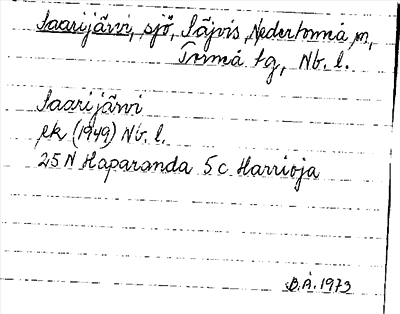 Saarijärvi, sjö, Säjvis, Nedertorneå sn,
Torneå tg, Nb. l.
Saarijärvi
ek (1949) Nb. l.
25 N Haparanda 5 c Harrioja
B.Å. 1973